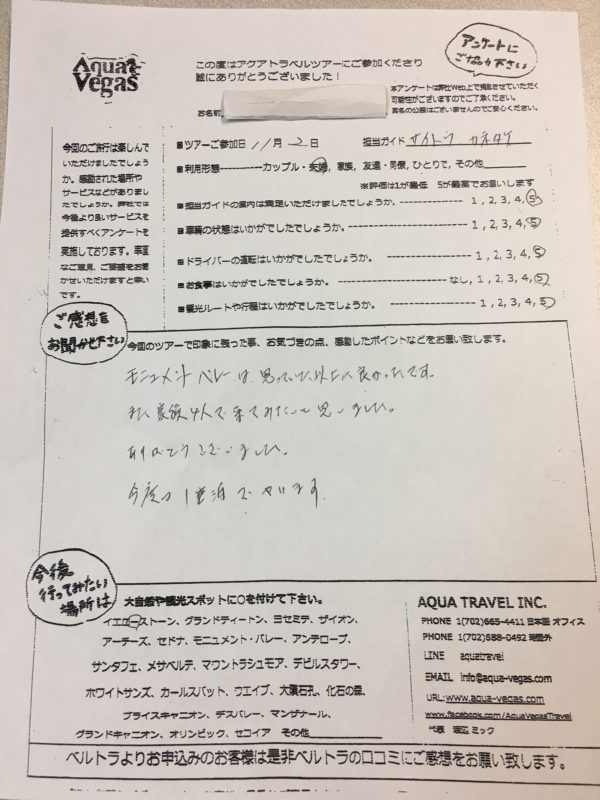 Aqua Vegas
この度はアクアトラベルツアーにご参加くださり
誠にありがとうございました！
アンケートに
ご協力下さい
本アンケートは弊社Web上で掲載させていただく
可能性がございますのでご了承ください。
実名の公開はございませんのでご安心ください。
お名前
今回のご旅行は楽しんで
いただけましたでしょう
か。感動された場所や
サービスなどがありまし
たでしょうか。弊社では
今後より良いサービスを
提供すべくアンケートを
実施しております。率直
なご意見、ご要望をお聞
かせいただけますと幸い
です。
■ツアーご参加日 11月 2日 担当ガイド サイトウ カネタケ
■利用形態-----------カップル・夫婦, 家族, 友達・同僚, ひとりで, その他
※評価は1が最低 5が最高でお願いします
■担当ガイドの案内は満足いただけましたでしょうか。 ---------- 1, 2, 3, 4, 5
■車輌の状態はいかがでしたでしょうか。 ---------- 1, 2, 3, 4, 5
■ドライバーの運転はいかがでしたでしょうか。 ---------- 1, 2, 3, 4, 5
■お食事はいかがでしたでしょうか。 ---------- なし, 1, 2, 3, 4, 5
■観光ルートや行程はいかがでしたでしょうか。 ---------- 1, 2, 3, 4, 5
ご感想を
お聞かせ下さい
今回のツアーで印象に残った事、お気づきの点、感動したポイントなどをお願い致します。
モニュメントバレーは思っていた以上に良かったです。
また家族4人で来てみたいと思いました。
ありがとうございました。
今度は1
今後
行ってみたい
場所は
大自然や観光スポットに○を付けて下さい。
イエローストーン、グランドティートン、ヨセミテ、ザイオン、
アーチーズ、セドナ、モニュメント・バレー、アンテロープ、
サンタフェ、メサベルデ、マウントラシュモア、デビルスタワー、
ホワイトサンズ、カールスバット、ウエイブ、大隕石孔、化石の森、
ブライスキャニオン、デスバレー、マンザナール、
グランドキャニオン、オリンピック、セコイア その他
AQUA TRAVEL INC.
PHONE 1(702)665-4411 日本語オフィス
PHONE 1(702)588-0492 時間外
LINE aquatravel
EMAIL info@aqua-vegas.com
URL:www.aqua-vegas.com
www.facebook.com/AquaVegasTravel
代表 渡辺 ミック
ベルトラよりお申込みのお客様は是非ベルトラの口コミにご感想をお願い致します。